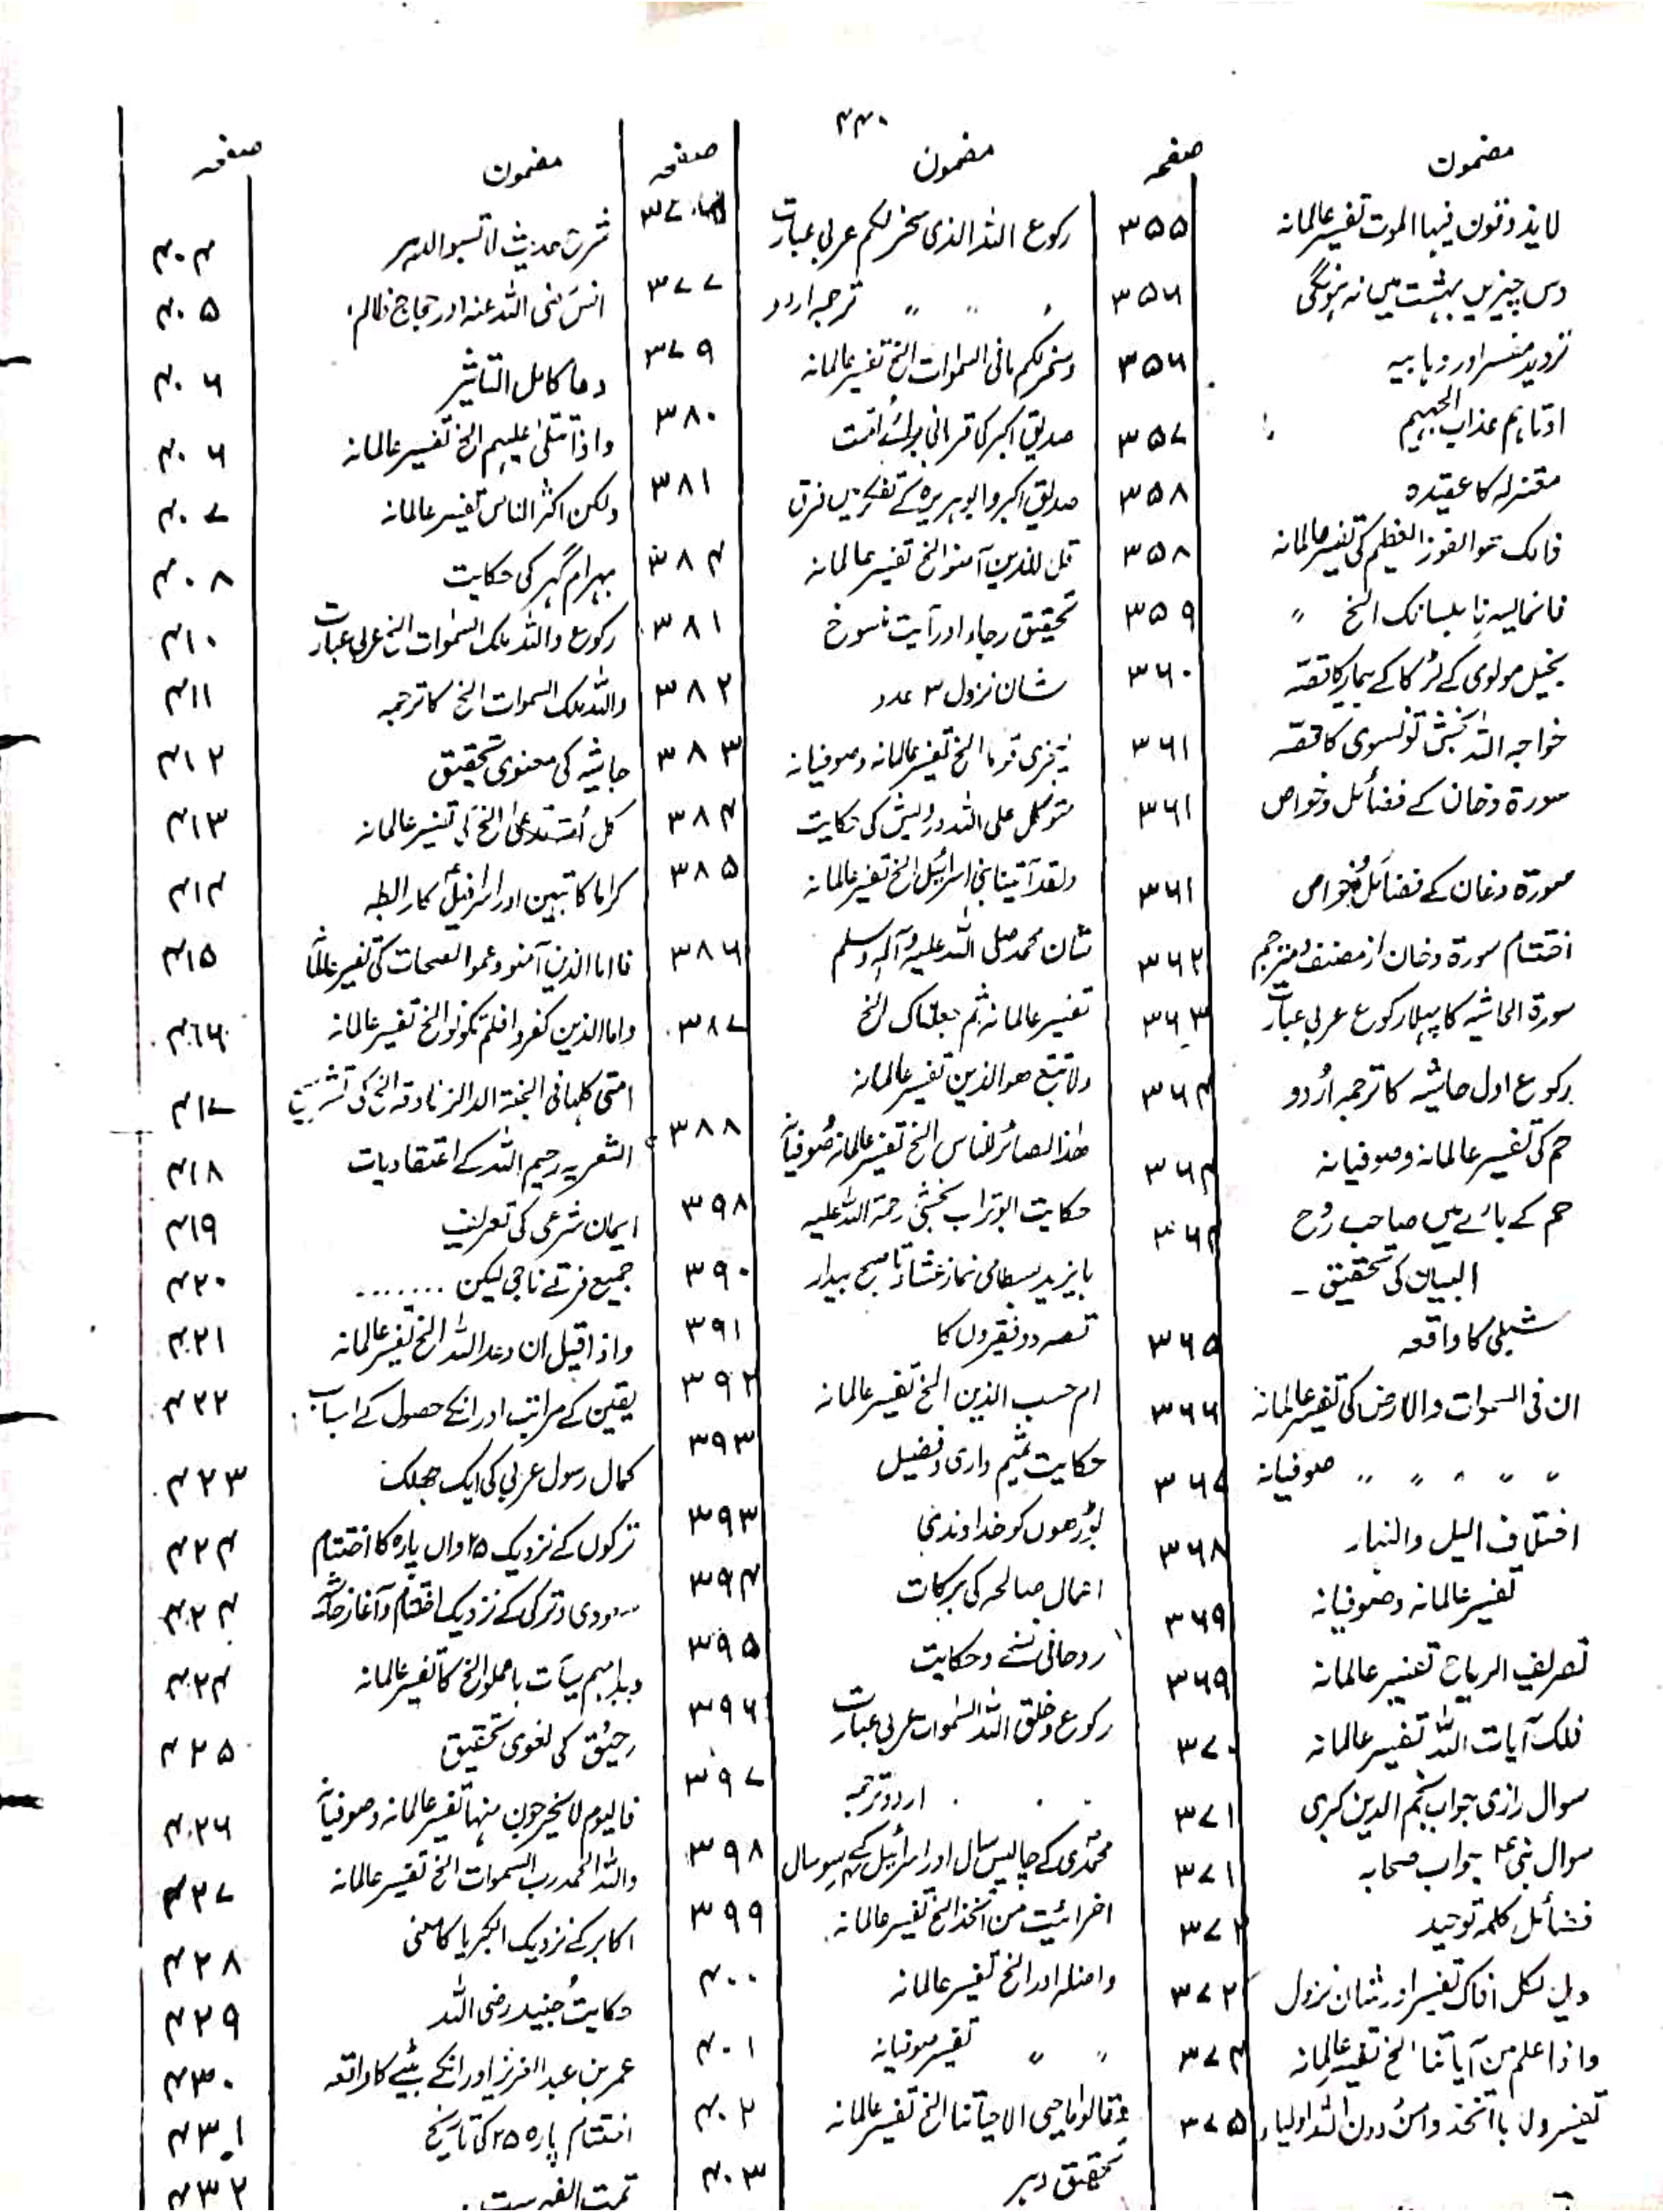 ۴۴۰
مضمون صفحہ
لا یذوقون فیہا الموت تفسیر عالمانہ ۳۵۵
دس چیزیں بہشت میں نہ ہونگی ۳۵۶
تردید مفسر اور وہابیہ ۳۵۶
اوتاہم عذاب الجحیم ۳۵۷
معتزلہ کا عقیدہ ۳۵۸
فالک ھوالفوز العظیم کی تفسیر عالمانہ ۳۵۸
فانمالیسرناہ بلسانک الخ ״ ۳۵۹
بخیل مولوی کے لڑکا کے بیمار کا قصہ ۳۶۰
خواجہ اللہ بخش تونسوی کا قصہ ۳۶۱
سورۃ دخان کے فضائل وخواص ۳۶۱
سورۃ دخان کے فضائل وخواص ۳۶۱
اختتام سورۃ دخان از مصنف ومترجم ۳۶۲
سورۃ الجاشیہ کا پہلا رکوع عربی عبارت ۳۶۳
رکوع اول جاشیہ کا ترجمہ اُردو ۳۶۴
حم کی تفسیر عالمانہ وصوفیانہ ۳۶۴
حم کے بارے میں صاحب روح ۳۶۴
البیان کی تحقیق ۔
شبلی کا واقعہ ۳۶۵
ان فی السموات والارض کی تفسیر عالمانہ ۳۶۶
״ ״ ״ ״ ״ صوفیانہ ۳۶۷
اختلاف الیل والنہار ۳۶۸
تفسیر عالمانہ وصوفیانہ ۳۶۹
تصریف الریاح تفسیر عالمانہ ۳۶۹
تلک آیات اللہ تفسیر عالمانہ ۳۷۰
سوال رازی جواب نجم الدین کبری ۳۷۱
سوال نبی جواب صحابہ ۳۷۱
فضائل کلمہ توحید ۳۷۲
ویل لکل افاک تفسیر اور شان نزول ۳۷۲
واذا علم من آیاتنا الخ تفسیر عالمانہ ۳۷۴
تفسیر ولا بااتخذوامن دون اللہ اولیاء ۳۷۵
مضمون صفحہ
رکوع اللہ الذی سخر لکم عربی عبارت
״ ״ ״ ترجمہ اردو ۳۷۷
وسخر لکم مافی السموات الخ تفسیر عالمانہ ۳۷۹
صدیق اکبر کی قربانی برائے اُمت ۳۸۰
صدیق اکبر وابوہریرہ کے تفکر میں فرق ۳۸۱
قل للذین آمنوا الخ تفسیر عالمانہ ۳۸۴
تحقیق رجاء اور آیت منسوخ ۳۸۱
شان نزول ۳ عدد ۳۸۲
لیجزی قوما الخ تفسیر عالمانہ وصوفیانہ ۳۸۳
متوکل علی اللہ درویش کی حکایت ۳۸۴
ولقد آتینا بنی اسرائیل الخ تفسیر عالمانہ ۳۸۵
شان محمد صلی اللہ علیہ وآلہ وسلم ۳۸۶
تفسیر عالمانہ ثم جعلناک الخ ۳۸۷
ولا تتبع ھوالذین تفسیر عالمانہ
ھٰذا بصائر للناس الخ تفسیر عالمانہ صوفیانہ ۳۸۸
حکایت ابوتراب بخشی رحمۃ اللہ علیہ ۳۹۸
بایزید بسطامی نماز عشاء تا صبح بیدار ۳۹۰
قصہ دو فقیروں کا ۳۹۱
ام حسب الذین الخ تفسیر عالمانہ ۳۹۲
حکایت تمیم داری وفضیل ۳۹۳
بوڑھوں کو خداوندی ۳۹۳
اعمال صالحہ کی برکات ۳۹۴
روحانی نسخے وحکایت ۳۹۵
رکوع وخلق اللہ السموات عربی عبارت ۳۹۶
اردو ترجمہ ۳۹۷
محمدی کے چالیس سال اور اسرائیل کے سو سال ۳۹۸
افرائیت من اتخذ الخ تفسیر عالمانہ ۳۹۹
واضلہ اور الخ تفسیر عالمانہ ۴۰۰
״ ״ تفسیر صوفیانہ ۴۰۱
وقالوا ماہی الاحیاتنا الخ تفسیر عالمانہ ۴۰۲
تحقیق دہر ۴۰۳
مضمون صفحہ
شرح حدیث لاتسبوا الدہر ۴۰۴
انس رضی اللہ عنہ اور حجاج ظالم ۴۰۵
دعا کامل التاثیر ۴۰۶
واذا تتلیٰ علیہم الخ تفسیر عالمانہ ۴۰۶
ولکن اکثر الناس تفسیر عالمانہ ۴۰۷
بہرام گہر کی حکایت ۴۰۸
رکوع واللہ ملک السمٰوات الخ عربی عبارت ۴۱۰
واللہ ملک السموات الخ کا ترجمہ ۴۱۱
جاشیہ کی معنوی تحقیق ۴۱۲
کل اُمۃ تدعیٰ الخ کی تفسیر عالمانہ ۴۱۳
کراما کاتبین اور اسرافیل کا رابطہ ۴۱۴
فاما الذین آمنو وعموا لصحات کی تفسیر عالمانہ ۴۱۵
واما الذین کفروا فلم تکونوا الخ تفسیر عالمانہ ۴۱۶
امتی کلہانی الجنۃ الد الزنادقہ الخ کی تشریح ۴۱۷
الشعریہ رحیم اللہ کے اعتقادیات ۴۱۸
ایمان شرعی کی تعریف ۴۱۹
جمیع فرقے ناجی لیکن ....... ۴۲۰
واذاقیل ان وعد اللہ الخ تفسیر عالمانہ ۴۲۱
یقین کے مراتب اور انکے حصول کے اسباب ۴۲۲
کمال رسول عربی کی ایک جھلک ۴۲۳
ترکوں کے نزدیک ۲۵ واں پارہ کا اختتام ۴۲۴
سعودی وترکی کے نزدیک اختتام وآغاز ۴۲۴
وبدالہم سیآت باعملوا الخ کا تفسیر عالمانہ ۴۲۴
رحیق کی لغوی تحقیق ۴۲۵
فالیوم لا یخرجون منہا تفسیر عالمانہ وصوفیانہ ۴۲۶
واللہ الحمد رب السموات الخ تفسیر عالمانہ ۴۲۷
اکابر کے نزدیک الکبریا کا معنی ۴۲۸
حکایت جنید رضی اللہ ۴۲۹
عمر بن عبدالعزیز اور انکے بیٹے کا واقعہ ۴۳۰
اختتام پارہ ۲۵ کی تاریخ ۴۳۱
تمت الفہرست ۴۳۲